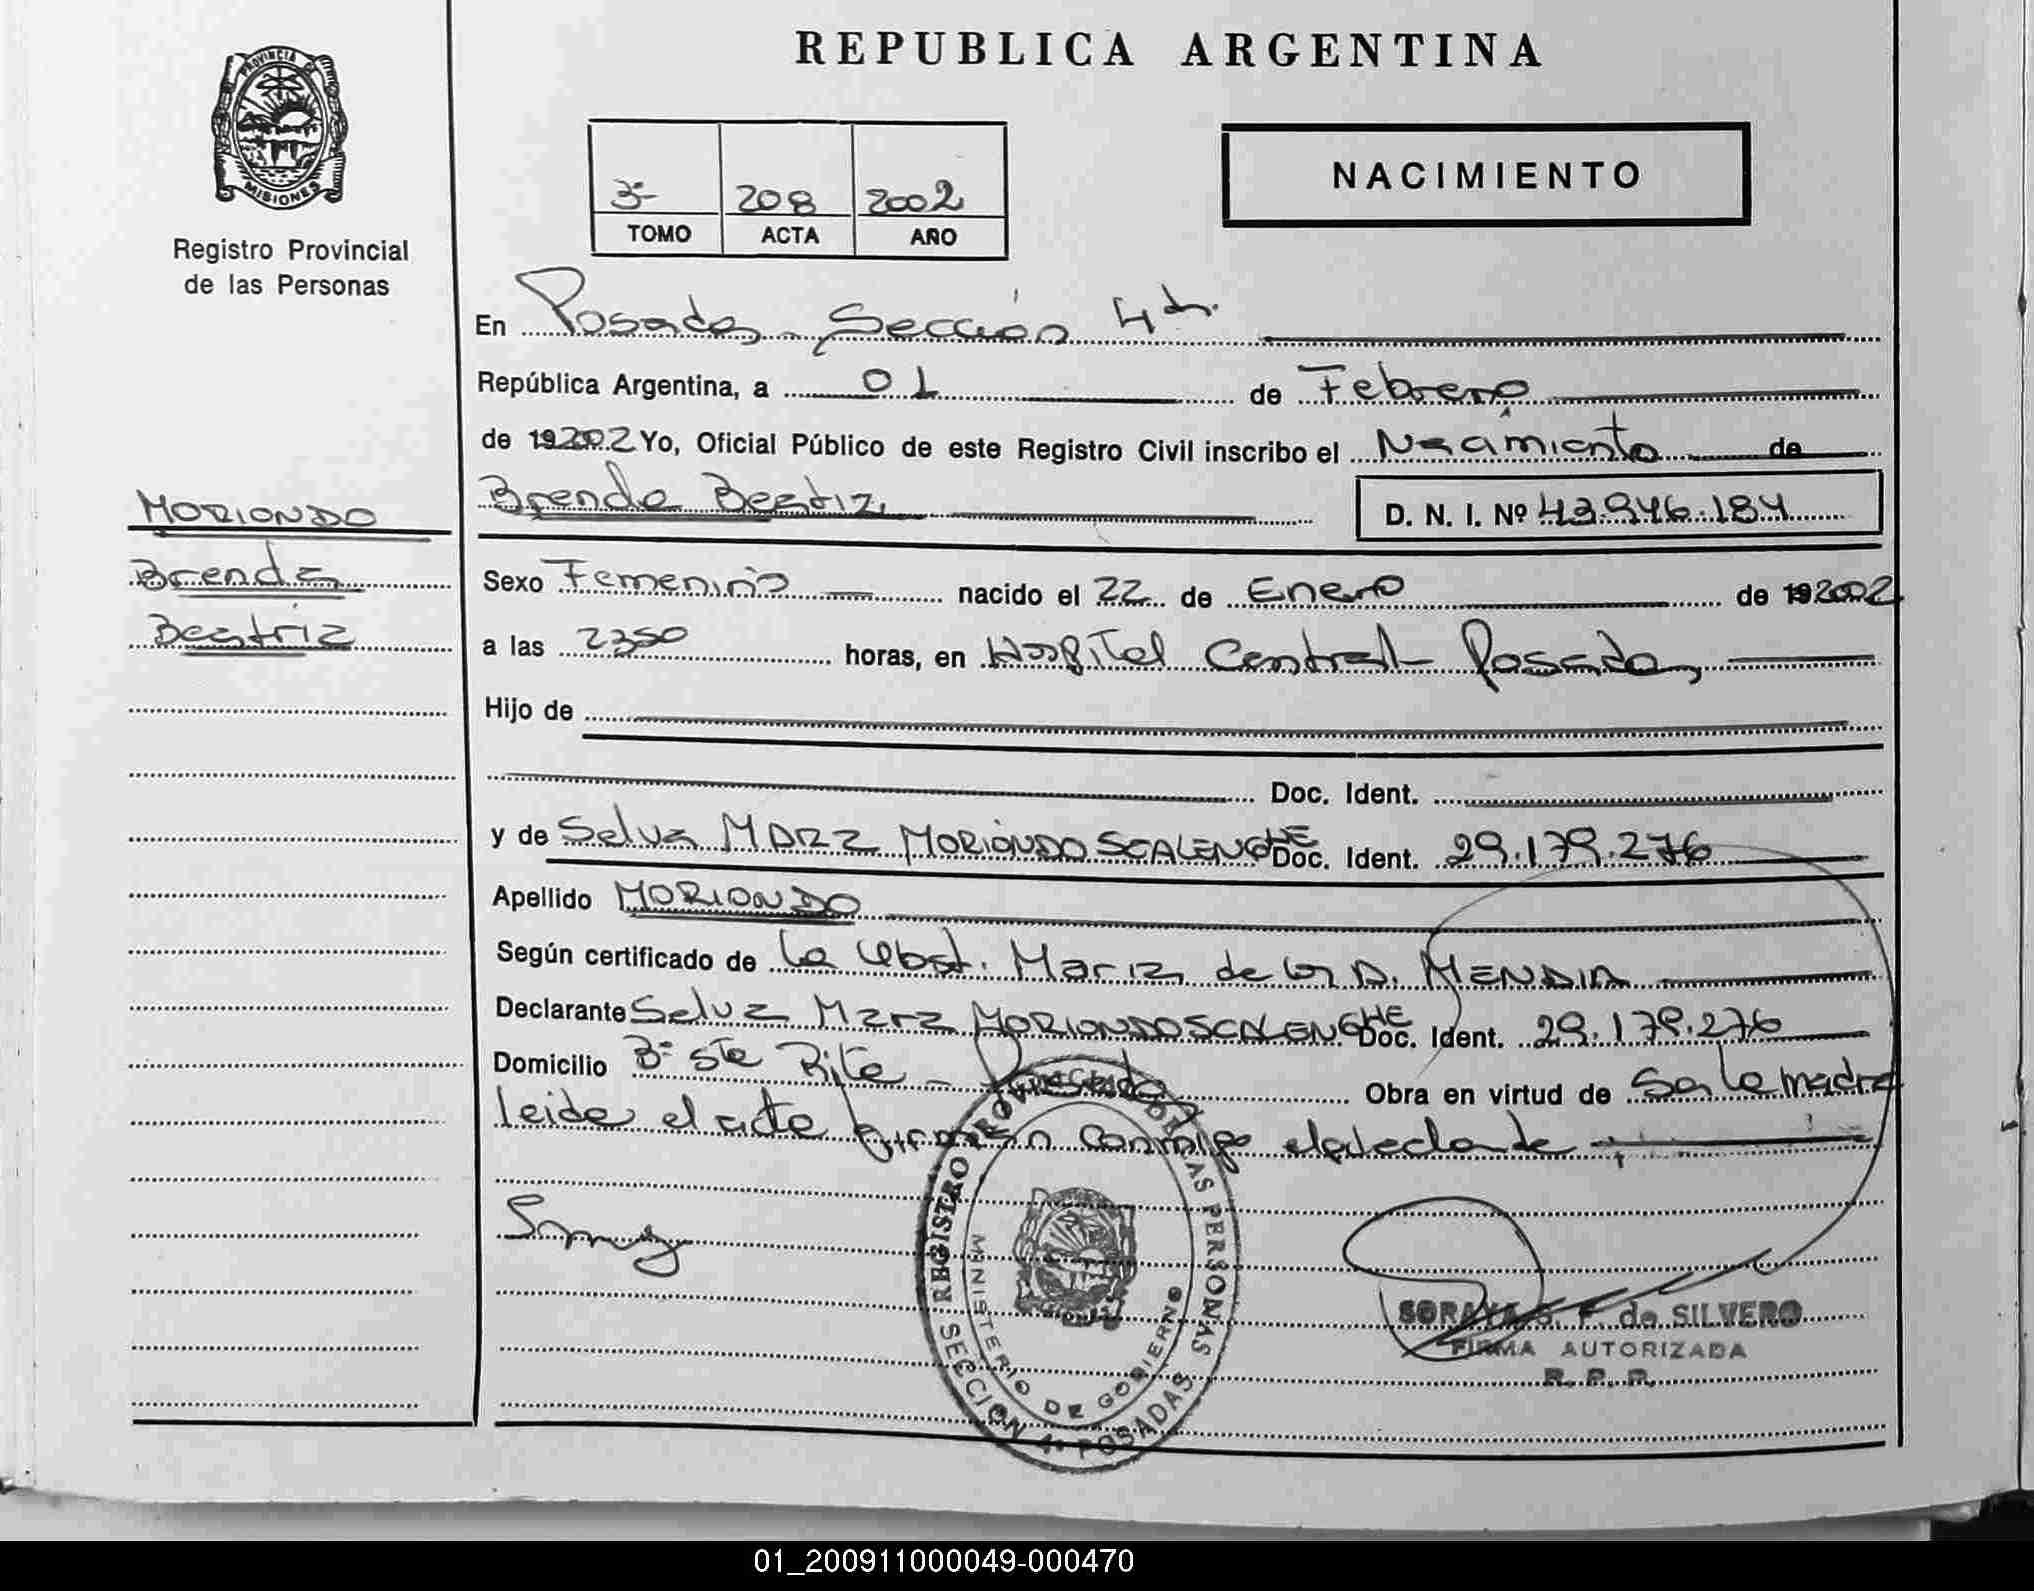 REPUBLICA ARGENTINA
PROVINCIA DE
MISIONES
Registro Provincial
de las Personas
3º 208 2002
TOMO ACTA AÑO
NACIMIENTO
En Posadas Sección 4ta.
República Argentina, a 01 de Febrero
de 192002 Yo, Oficial Público de este Registro Civil inscribo el Nacimiento de
Brenda Beatriz D. N. I. Nº 43.946.184
MORIONDO
Brenda
Beatriz
Sexo Femenino nacido el 22 de Enero de 192002
a las 2350 horas, en Hospital Central Posadas
Hijo de
Doc. Ident.
y de Selva Mara MORIONDO SCALENGHE Doc. Ident. 29.179.276
Apellido MORIONDO
Según certificado de la Obst. Maria de los A. MENDIA
Declarante Selva Mara MORIONDO SCALENGHE Doc. Ident. 29.179.276
Domicilio Bº Sta Rita - Posadas Obra en virtud de Ser la madre
leida el acta firman conmigo el declarante
REGISTRO PROVINCIAL DE LAS PERSONAS
MINISTERIO DE GOBIERNO
SECCION 4ª POSADAS
SORAYA S. F. de SILVERO
FIRMA AUTORIZADA
R. P. P.
01_200911000049-000470